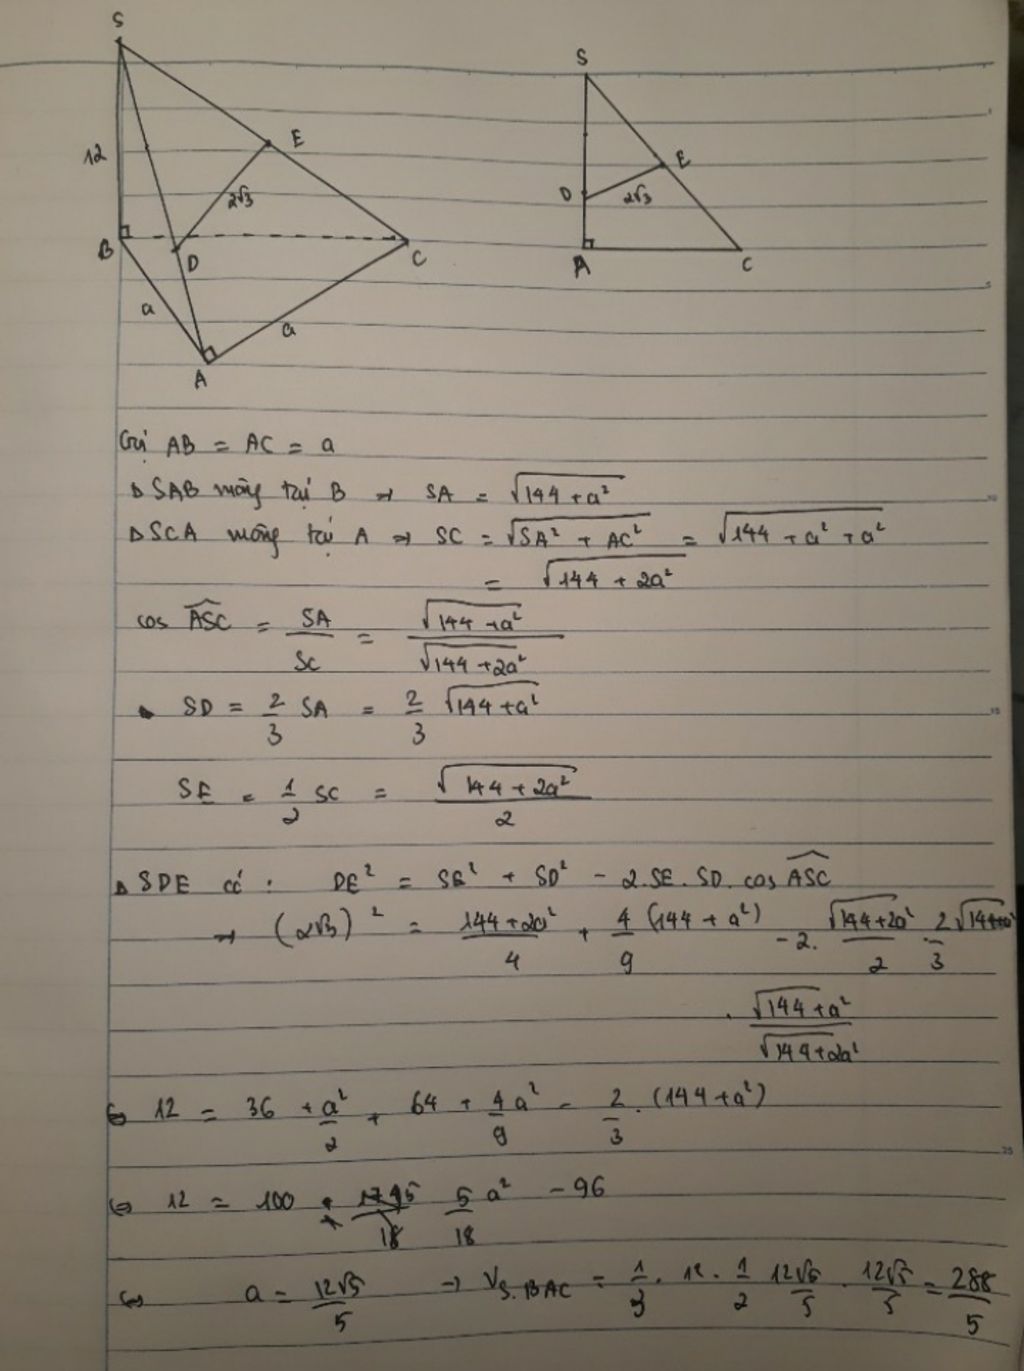 S
12
E
2√3
B
D
C
a
a
A
S
D
E
2√3
A
C
Gọi AB = AC = a
Δ SAB vuông tại B → SA = √(144 + a²)
Δ SCA vuông tại A ⇒ SC = √(SA² + AC²) = √(144 + a² + a²)
= √(144 + 2a²)
cos ASC = SA/SC = √(144 + a²)/√(144 + 2a²)
SD = 2/3 SA = 2/3 √(144 + a²)
SE = 1/2 SC = √(144 + 2a²)/2
Δ SDE có : DE² = SE² + SD² - 2.SE.SD.cos ASC
→ (2√3)² = (144 + 2a²)/4 + 4/9 (144 + a²) - 2. √(144 + 2a²)/2 2/3 √(144 + a²)
. √(144 + a²)/√(144 + 2a²)
⇔ 12 = 36 + a²/2 + 64 + 4/9 a² - 2/3 . (144 + a²)
⇔ 12 = 100 + 5/18 a² - 96
⇔ a = 12√5/5 → V S.BAC = 1/3 . 12 . 1/2 12√5/5 . 12√5/5 = 288/5